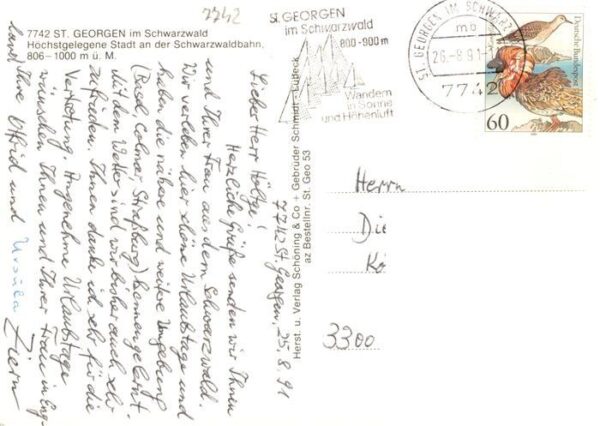 7742
7742 ST. GEORGEN im Schwarzwald
Höchstgelegene Stadt an der Schwarzwaldbahn,
806–1000 m ü. M.
ST. GEORGEN
im Schwarzwald
800-900m
Wandern
in Sonne
und Höhenluft
ST GEORGEN IM SCHWARZW
mb
26.-8.91-1
7742
Deutsche Bundespost
60
7742 St. Georgen, 25.8.91
Lieber Herr
Herzliche Grüße senden wir Ihnen
und Ihrer Frau aus dem Schwarzwald.
Wir verleben hier schöne Urlaubstage und
haben die nähere und weitere Umgebung
(Basel, Colmar, Straßburg) kennengelernt.
Mit dem Wetter sind wir bisher auch sehr
zufrieden. Ihnen danke ich sehr für die
Vertretung. Angenehme Urlaubstage
wünschen Ihnen und Ihrer Frau in Eng-
land Ihre und Ursula Ziern
Herst. u. Verlag Schöning & Co + Gebrüder Schmidt - Lübeck
az Bestellnr. St. Geo 53
Herrn
Die
Kö
3300